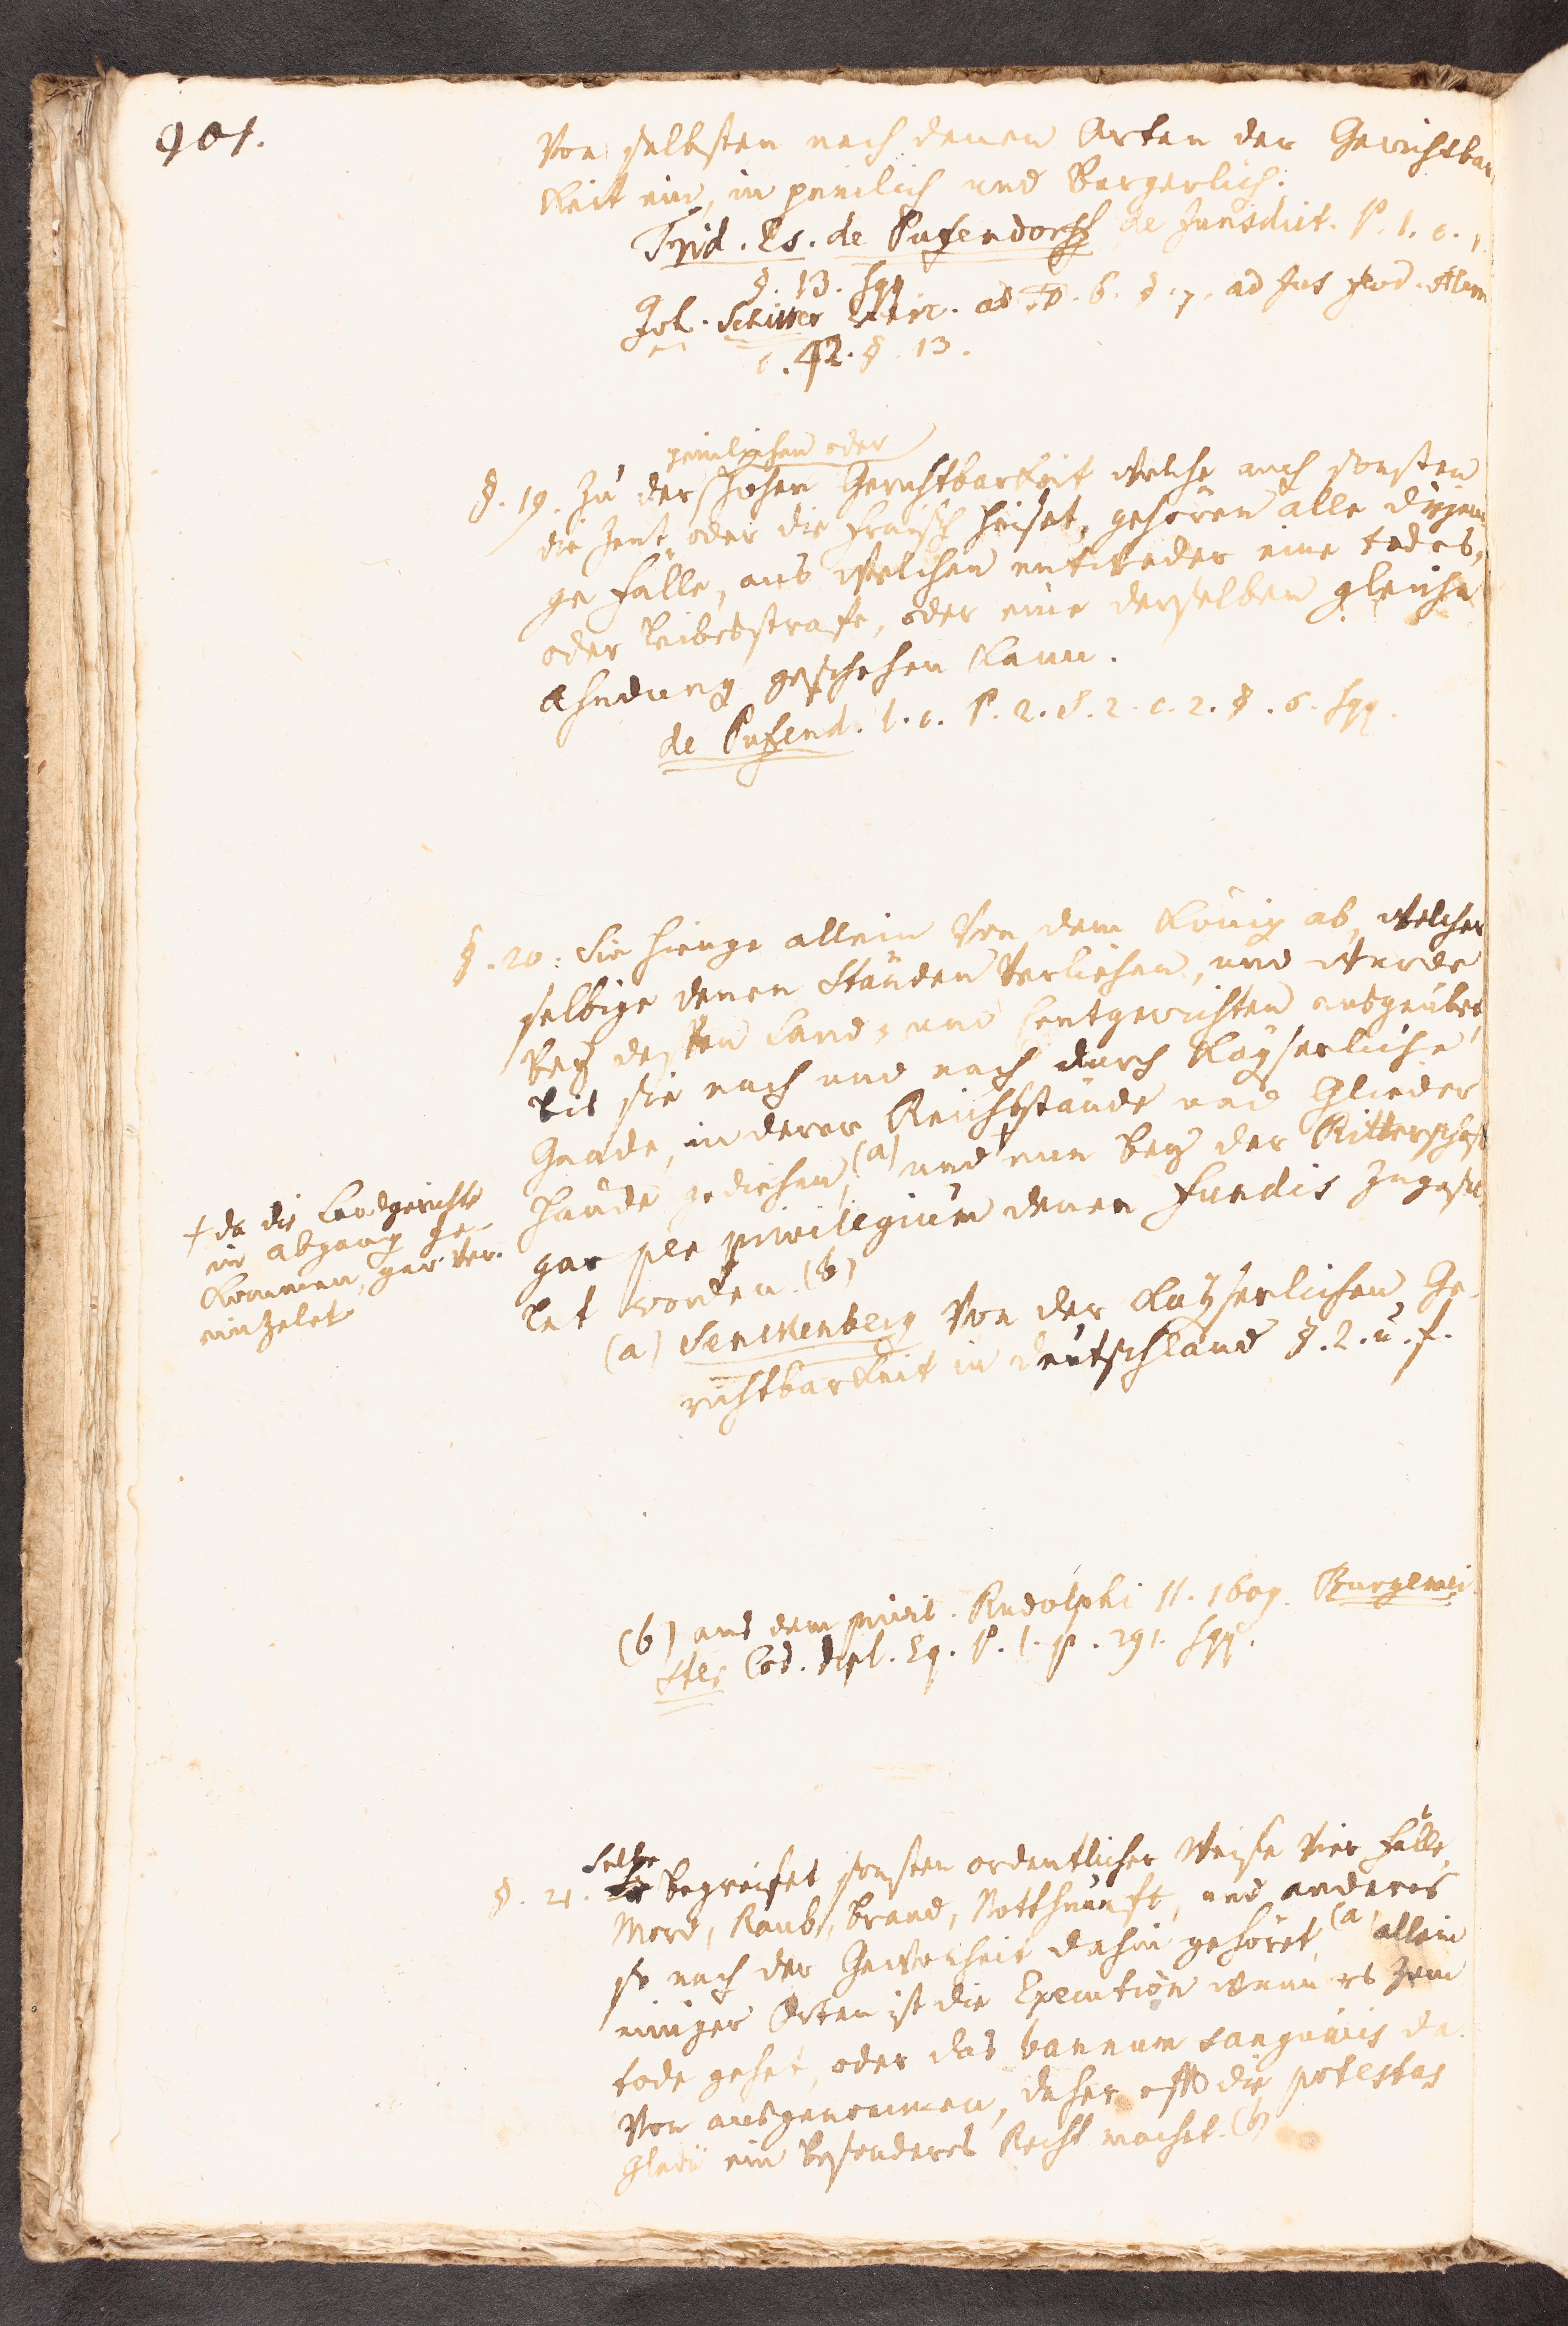 901.
von selbsten nach denen Arten der Gerichtbar
keit ein, in peinlich und Bürgerlich.
Frid. Es. de Pufendorff de Jurisdict. P. 1. c. 1.
§. 13. sqq
Joh. Schilter ad §. 7. ad Jus feud. Alem
c. 42. §. 13.
peinlichen oder
§. 19. Zu der hohen Gerichtbarkeit welche auch sonsten
die Zent, oder die Fraisch heiset, gehören alle diejeni
ge Fälle, aus welchen entweder eine todes,
oder Leibesstrafe, oder eine derselben gleiche
Ahndung geschehen kann.
de Pufend. l. c. P. 2. S. 2. c. 2. §. 6. sqq.
§. 20. Sie hienge allein von dem König ab, welcher
selbige denen Ständen verliehen, und wurde
bey dessen Land- und Centgerichten ausgeübet,
bis sie nach und nach durch Kayserliche
Gnade, in derer Reichsstände und Glieder
Hände gediehen, (a) und † nun bey der Ritterschaft
gar per privilegium denen fundis zugesel
let worden. (b)
† da die Landgerichte
in abgang ge-
kommen, gar ver-
einzelet
(a) Senckenberg von der Kayserlichen Ge-
richtbarkeit in Deutschland §. 2. u. f.
(b) aus dem privil. Rudolphi II. 1609. Burgemei
ster Cod. dipl. Eq. P. 1. p. 291. sqq.
§. 21. Selbe begreifet sonsten ordentlicher Weise vier Fälle,
Mord, Raub, Brand, Nothzunft, und anderes
so nach der Gewonheit dahin gehöret, (a) allein
einiger Orten ist die Execution wenn es zum
tode gehet, oder das bannum sanguinis da
von ausgenommen, daher offt die potestas
gladii ein besonderes Recht machet. (b)